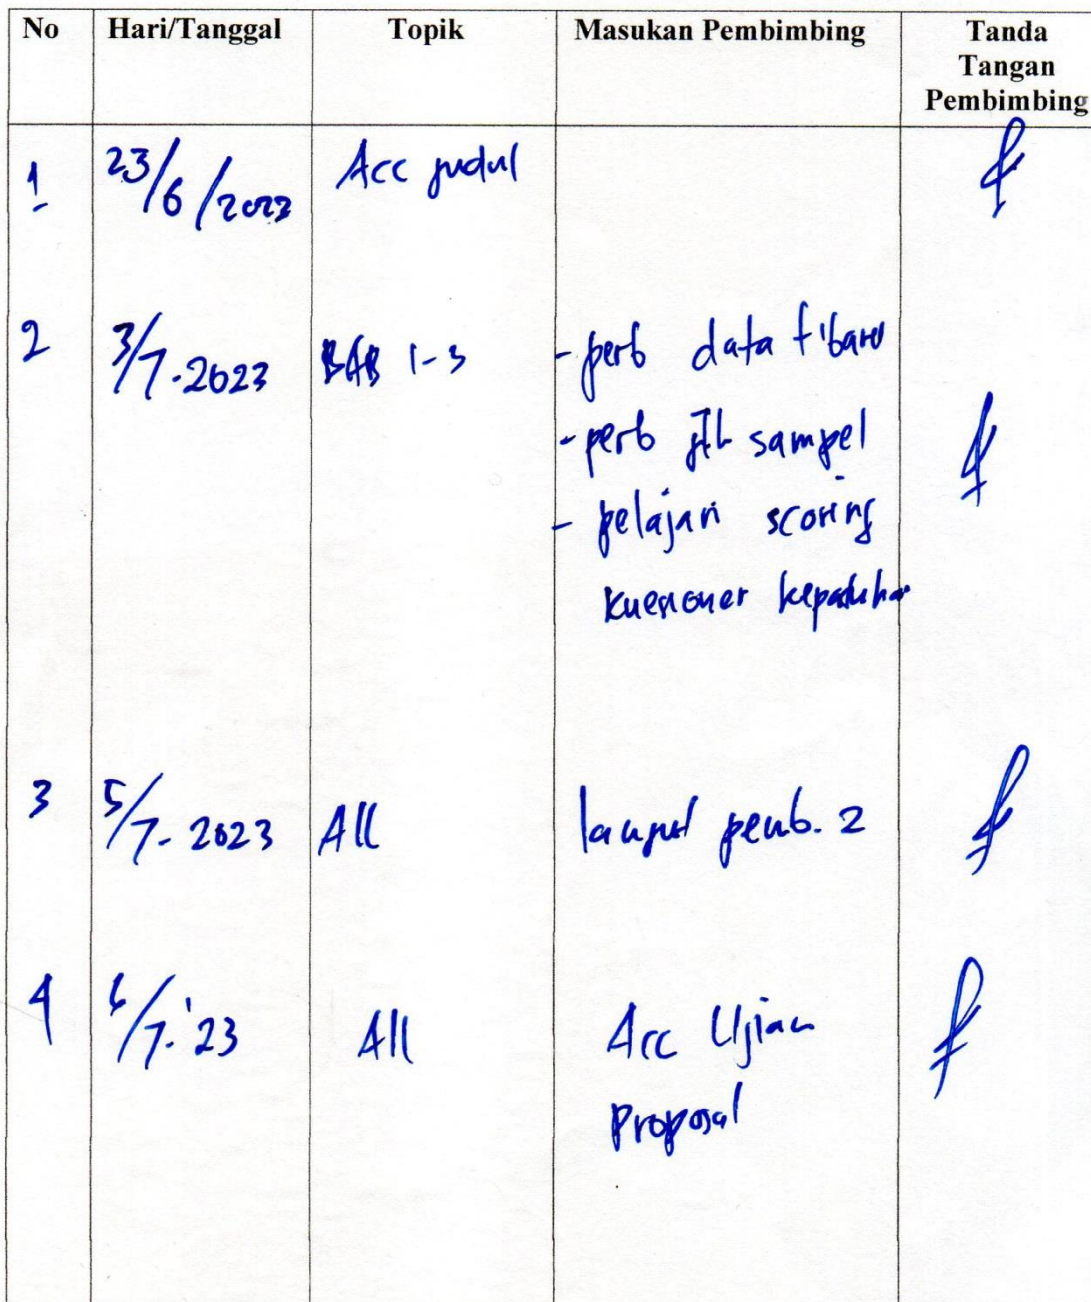 No Hari/Tanggal Topik Masukan Pembimbing Tanda Tangan Pembimbing
1 23/6/2023 Acc judul
2 3/7-2023 BAB 1-3 - perb data t'baru
- perb jlh sampel
- pelajari scoring
kuesioner kepatuhan
3 5/7-2023 All lanjut pemb. 2
4 6/7-'23 All Acc Ujian
Proposal